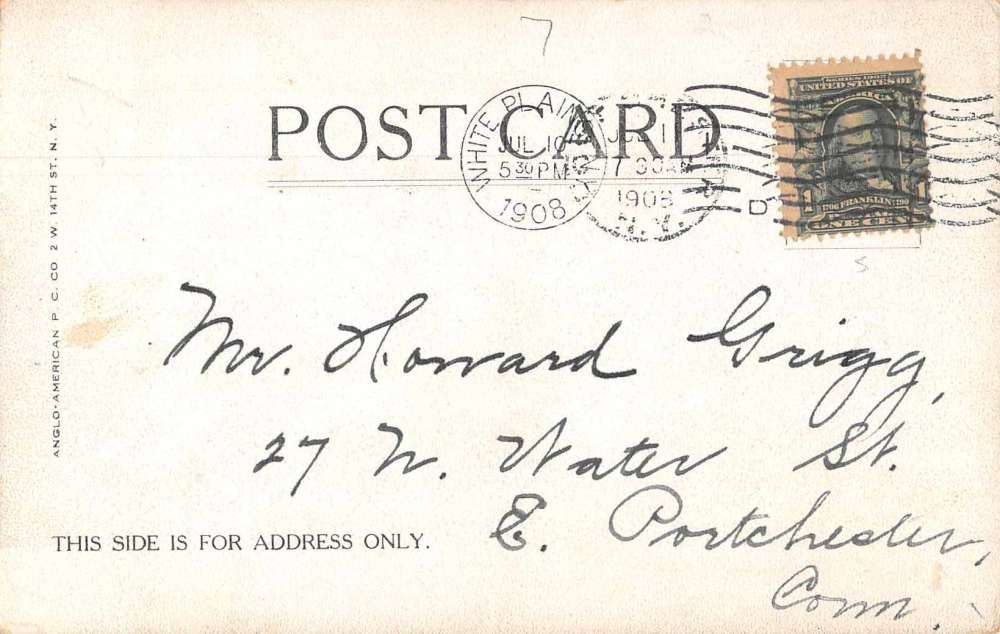 7
POST CARD
WHITE PLAINS
JUL 10
5 30 PM
1908
1908
N.Y.
D
SERIES 1902
UNITED STATES OF
AMERICA
1 1
1706 FRANKLIN 1790
ONE CENT
s
ANGLO-AMERICAN P. C. CO 2 W. 14TH ST. N.Y.
Mr. Howard Grigg,
27 N. Water St.
E. Portchester,
Conn.
THIS SIDE IS FOR ADDRESS ONLY.